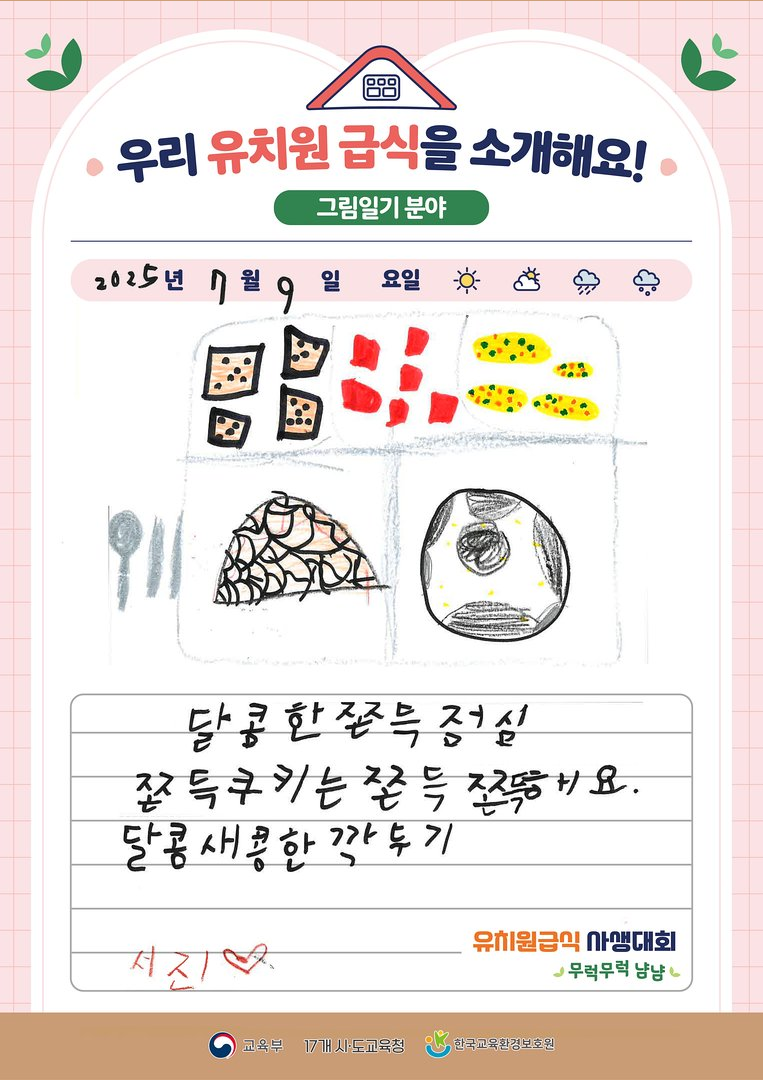 우리 유치원 급식을 소개해요!
그림일기 분야
2025년 7월 9일 요일
달콩한 쫀득 점심
쫀득쿠키는 쫀득 쫀뜩해요.
달콤새콩한 깍두기
서진♡
유치원급식 사생대회
무럭무럭 냠냠
교육부 17개 시·도교육청 한국교육환경보호원